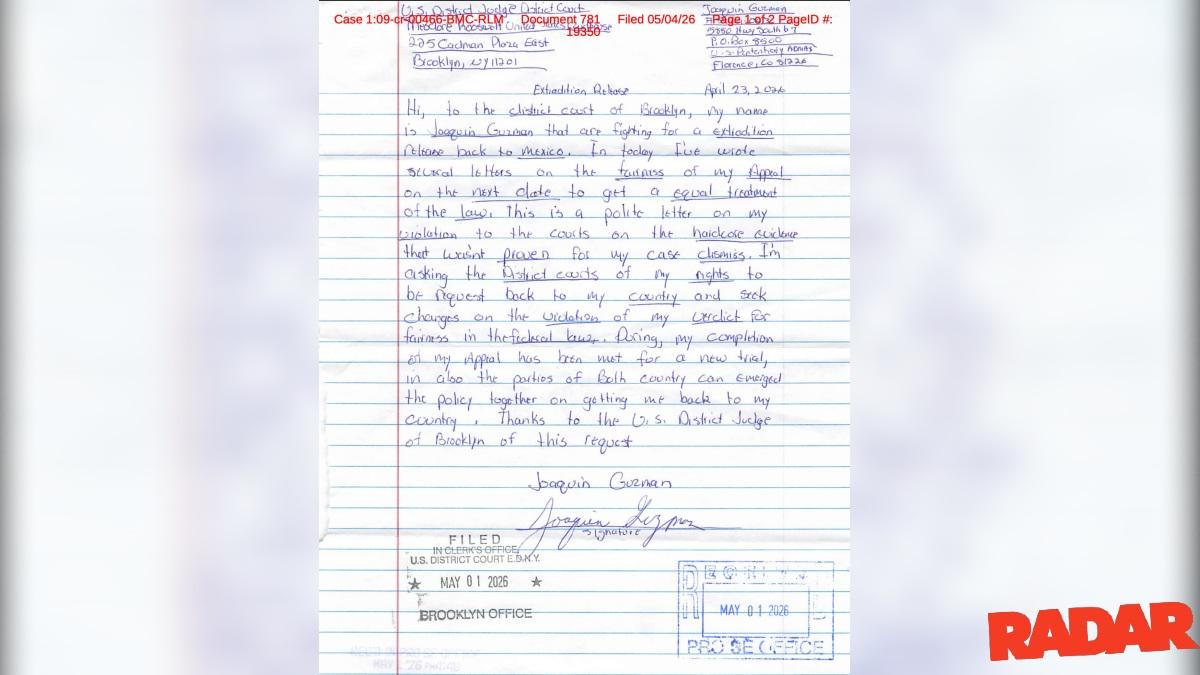 U.S. District Judge District Court
Joaquin Guzman
Case 1:09-cr-00466-BMC-RLM Document 781 Filed 05/04/26 Page 1 of 2 PageID #:
19350
Theodore Roosevelt United States
5880 Hwy South 67
225 Cadman Plaza East
P.O. Box 8500
U.S. Penitentiary ADMAX
Brooklyn, NY 11201
Florence, Co 81226
Extradition Release
April 23, 2026
Hi, to the district court of Brooklyn, my name
is Joaquin Guzman that are fighting for a extradition
release back to Mexico. In today I've wrote
several letters on the fairness of my Appeal
on the next date to get a equal treatment
of the law. This is a polite letter on my
violation to the courts on the hardcore evidence
that wasn't proven for my case dismiss. I'm
asking the District courts of my rights to
be request back to my country and seek
changes on the violation of my verdict for
fairness in the federal law. During, my completion
of my Appeal has been met for a new trial,
in also the parties of Both country can emerged
the policy together on getting me back to my
country. Thanks to the U.S. District Judge
of Brooklyn of this request
Joaquin Guzman
Joaquin Guzman
signature
FILED
IN CLERK'S OFFICE
U.S. DISTRICT COURT E.D.N.Y.
★ MAY 01 2026 ★
BROOKLYN OFFICE
MAY 01 2026
PRO SE OFFICE
RADAR